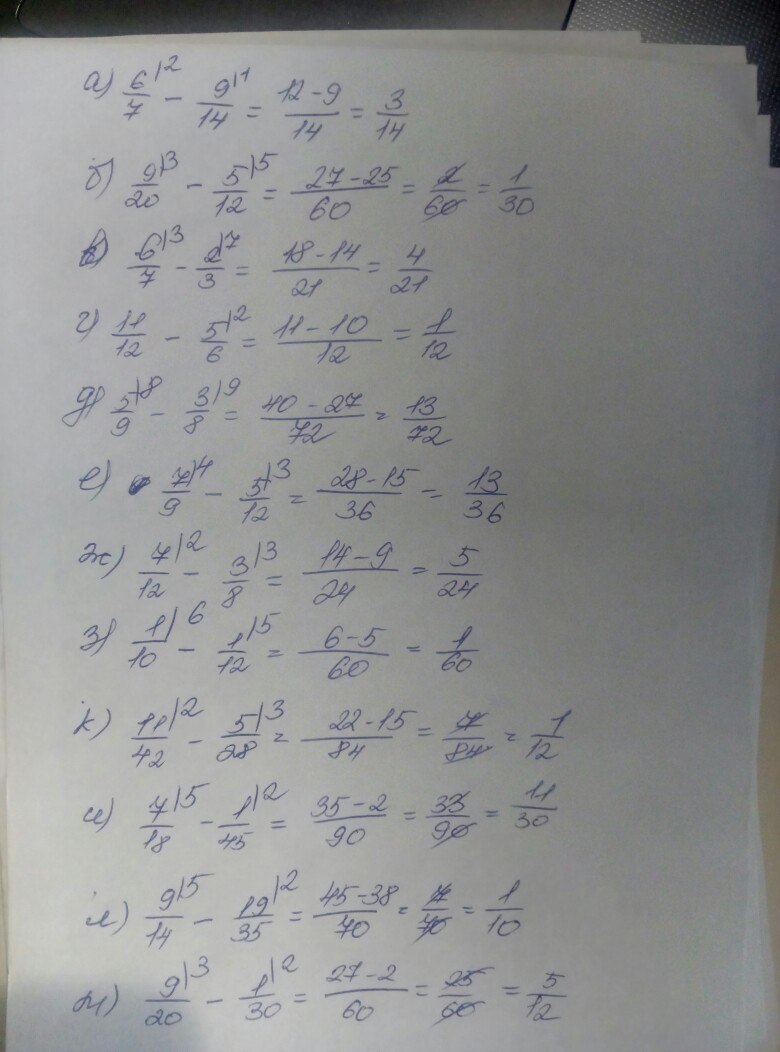 а) 6/7|2 - 9/14|1 = (12-9)/14 = 3/14
б) 9/20|3 - 5/12|5 = (27-25)/60 = 2/60 = 1/30
в) 6/7|3 - 2/3|7 = (18-14)/21 = 4/21
г) 11/12 - 5/6|2 = (11-10)/12 = 1/12
д) 5/9|8 - 3/8|9 = (40-27)/72 = 13/72
е) 7/9|4 - 5/12|3 = (28-15)/36 = 13/36
ж) 7/12|2 - 3/8|3 = (14-9)/24 = 5/24
з) 1/10|6 - 1/12|5 = (6-5)/60 = 1/60
к) 11/42|2 - 5/28|3 = (22-15)/84 = 7/84 = 1/12
и) 7/18|5 - 1/45|2 = (35-2)/90 = 33/90 = 11/30
л) 9/14|5 - 19/35|2 = (45-38)/70 = 7/70 = 1/10
м) 9/20|3 - 1/30|2 = (27-2)/60 = 25/60 = 5/12